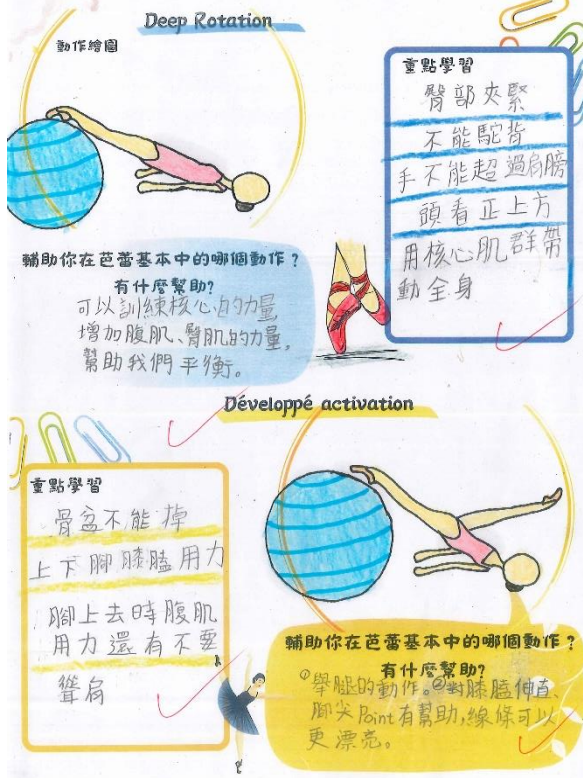 Deep Rotation
動作繪圖
重點學習
臀部夾緊
不能駝背
手不能超過肩膀
頭看正上方
用核心肌群帶
動全身
輔助你在芭蕾基本中的哪個動作？
有什麼幫助?
可以訓練核心的力量
增加腹肌、臀肌的力量,
幫助我們平衡。
Développé activation
重點學習
骨盆不能掉
上下腳膝蓋用力
腳上去時腹肌
用力還有不要
聳肩
輔助你在芭蕾基本中的哪個動作？
有什麼幫助?
①舉腿的動作。②對膝蓋伸直、
腳尖Point有幫助,線條可以
更漂亮。